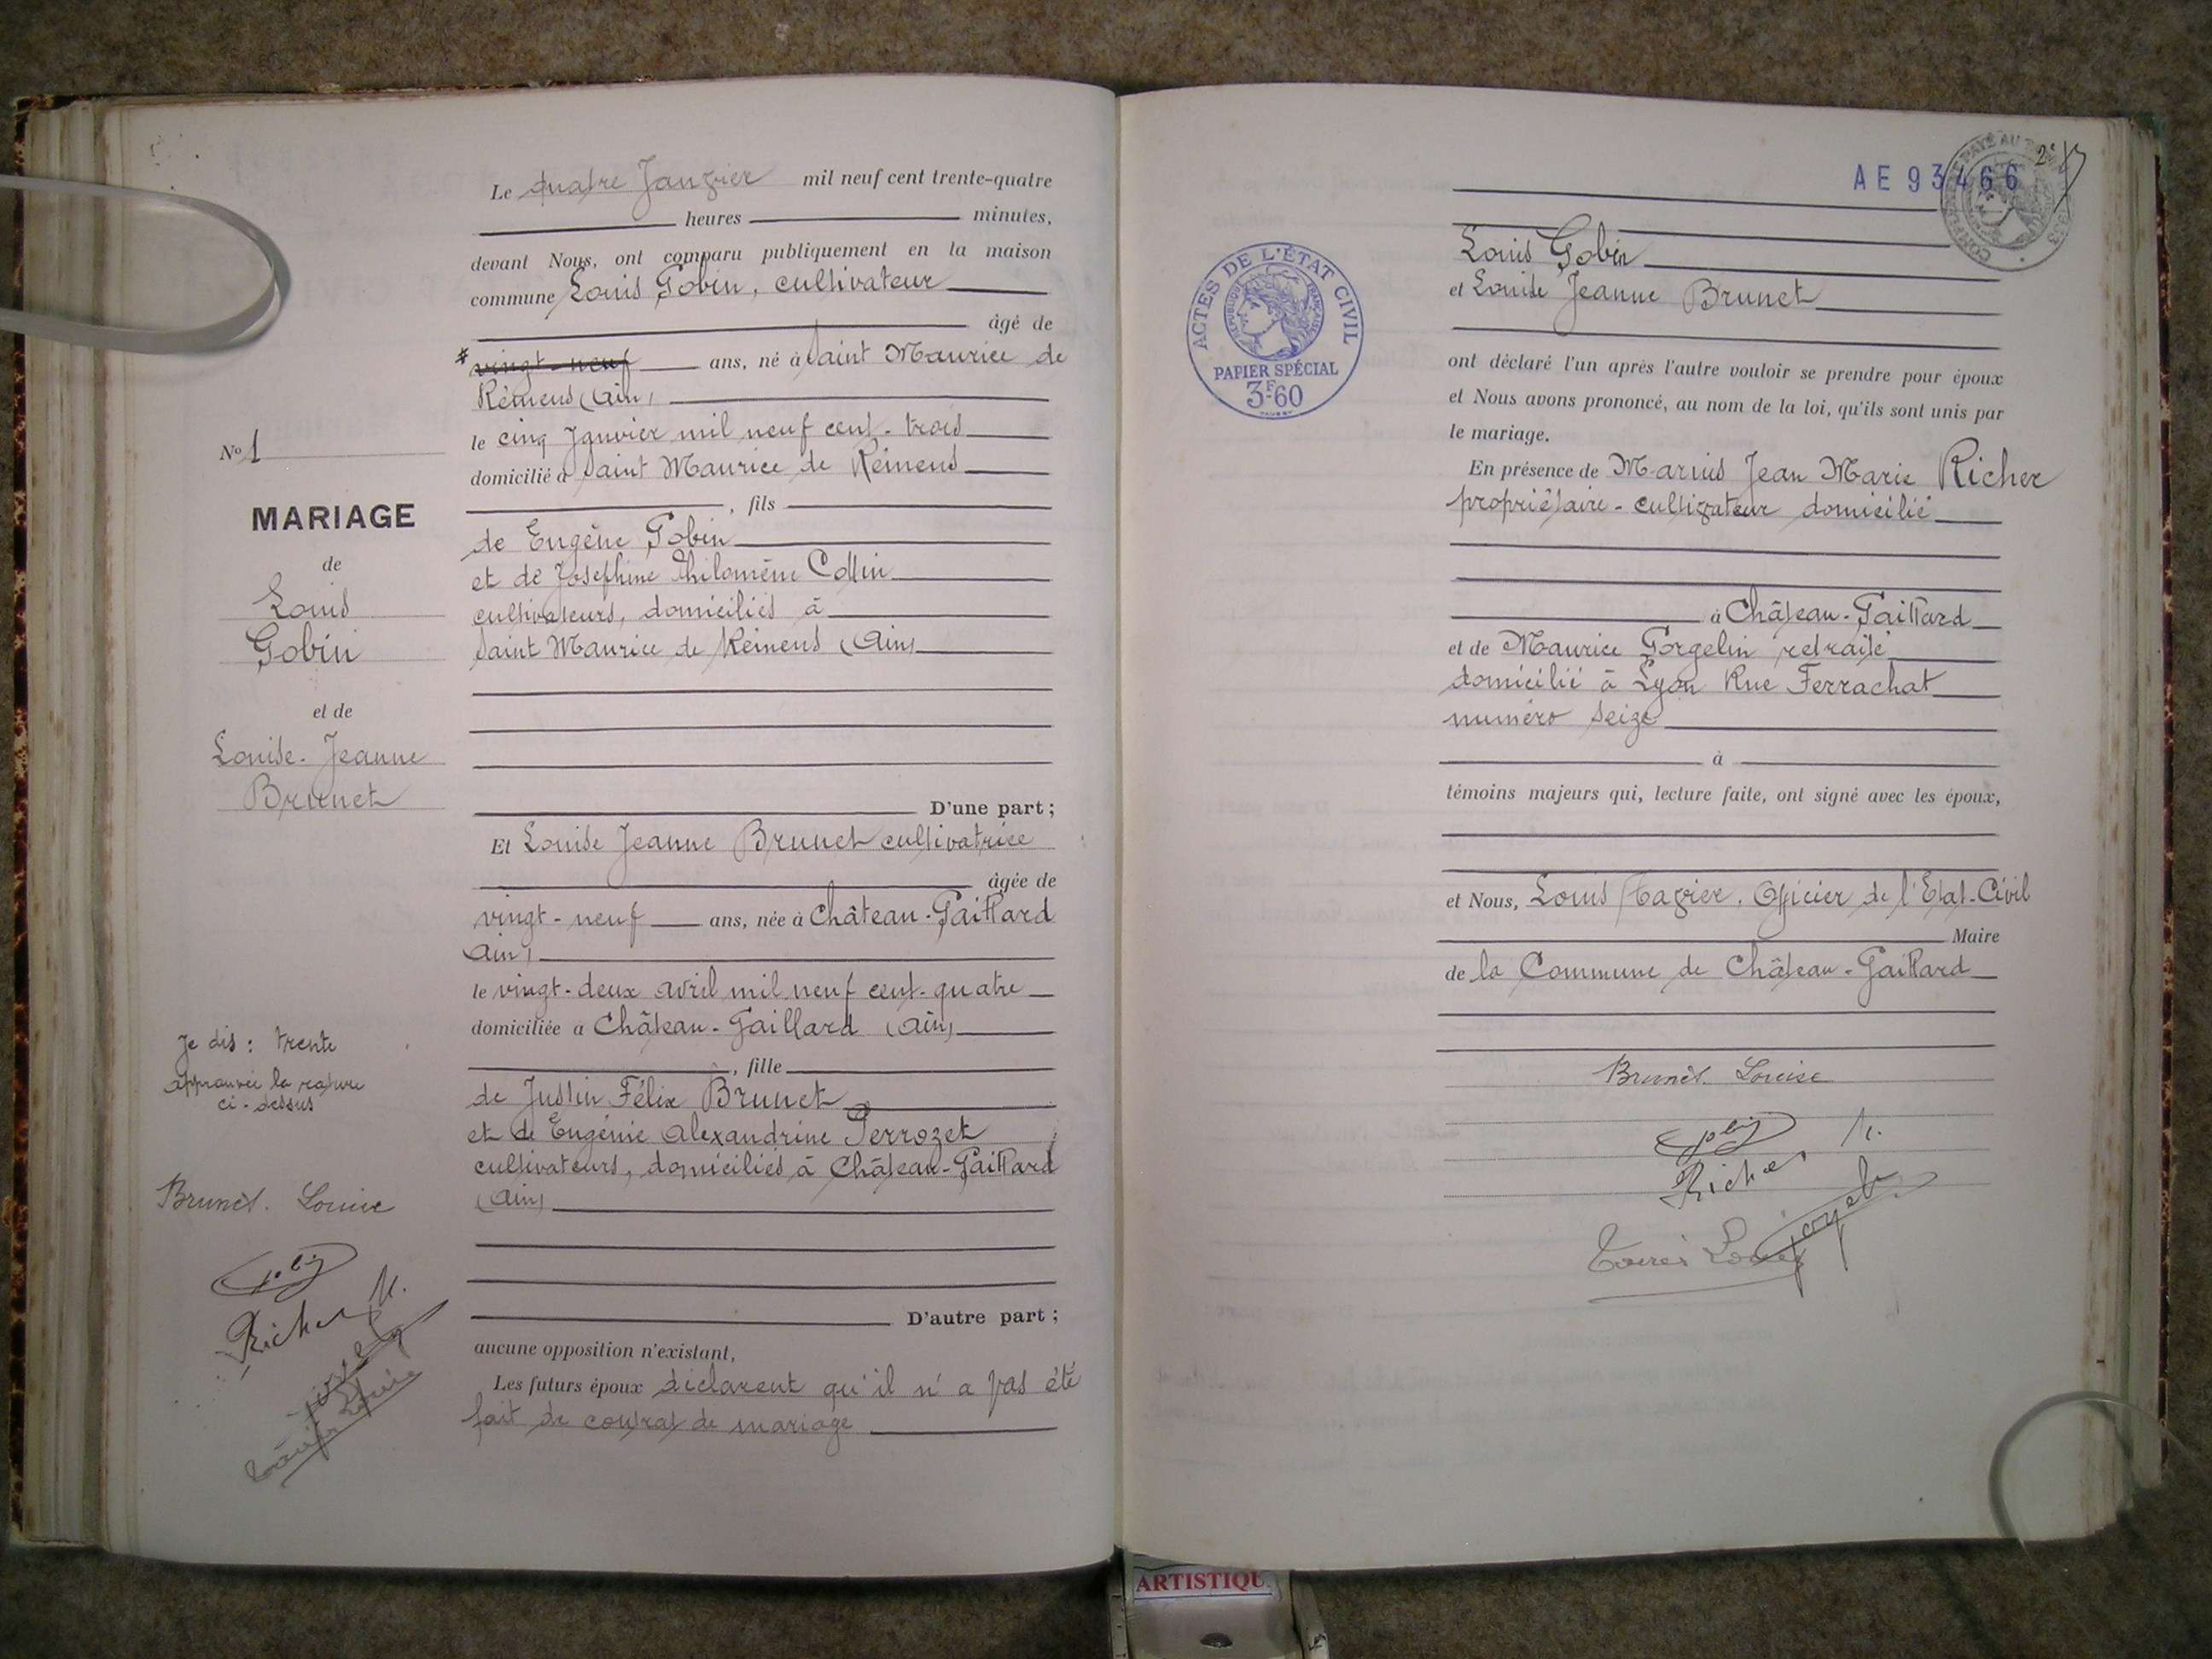 Le quatre Janvier mil neuf cent trente-quatre
heures minutes,
devant Nous, ont comparu publiquement en la maison
commune Louis Gobin, cultivateur
âgé de
* vingt-neuf ans, né à Saint Maurice de
Rémens (Ain)
le cinq Janvier mil neuf cent-trois
domicilié à Saint Maurice de Rémens
, fils
de Eugène Gobin
et de Joséphine Philomène Collin
cultivateurs, domiciliés à
Saint Maurice de Rémens (Ain)
D'une part ;
Et Louise Jeanne Brunet cultivatrice
âgée de
vingt-neuf ans, née à Château-Gaillard
(Ain)
le vingt-deux avril mil neuf cent-quatre
domiciliée à Château-Gaillard (Ain)
, fille
de Justin Félix Brunet
et de Eugénie Alexandrine Perrozet
cultivateurs, domiciliés à Château-Gaillard
(Ain)
D'autre part ;
aucune opposition n'existant,
Les futurs époux déclarent qu'il n'a pas été
fait de contrat de mariage
No 1
MARIAGE
de
Louis
Gobin
et de
Louise-Jeanne
Brunet
Je dis : trente
approuvée la rature
ci-dessus
Brunet. Louise
Gobin
Richer M.
AE 93466
2e
Louis Gobin
et Louise Jeanne Brunet
ACTES DE L'ÉTAT CIVIL
RÉPUBLIQUE FRANÇAISE
PAPIER SPÉCIAL
3F60
ont déclaré l'un après l'autre vouloir se prendre pour époux
et Nous avons prononcé, au nom de la loi, qu'ils sont unis par
le mariage.
En présence de Marius Jean Marie Richer
propriétaire-cultivateur domicilié
à Château-Gaillard
et de Maurice Gorgelin retraité
domicilié à Lyon Rue Ferrachat
numéro seize
à
témoins majeurs qui, lecture faite, ont signé avec les époux,
et Nous, Louis Tavier. Officier de l'Etat-Civil
Maire
de la Commune de Château-Gaillard
Brunet. Louise
Gobin
Richer M.
ARTISTIQU